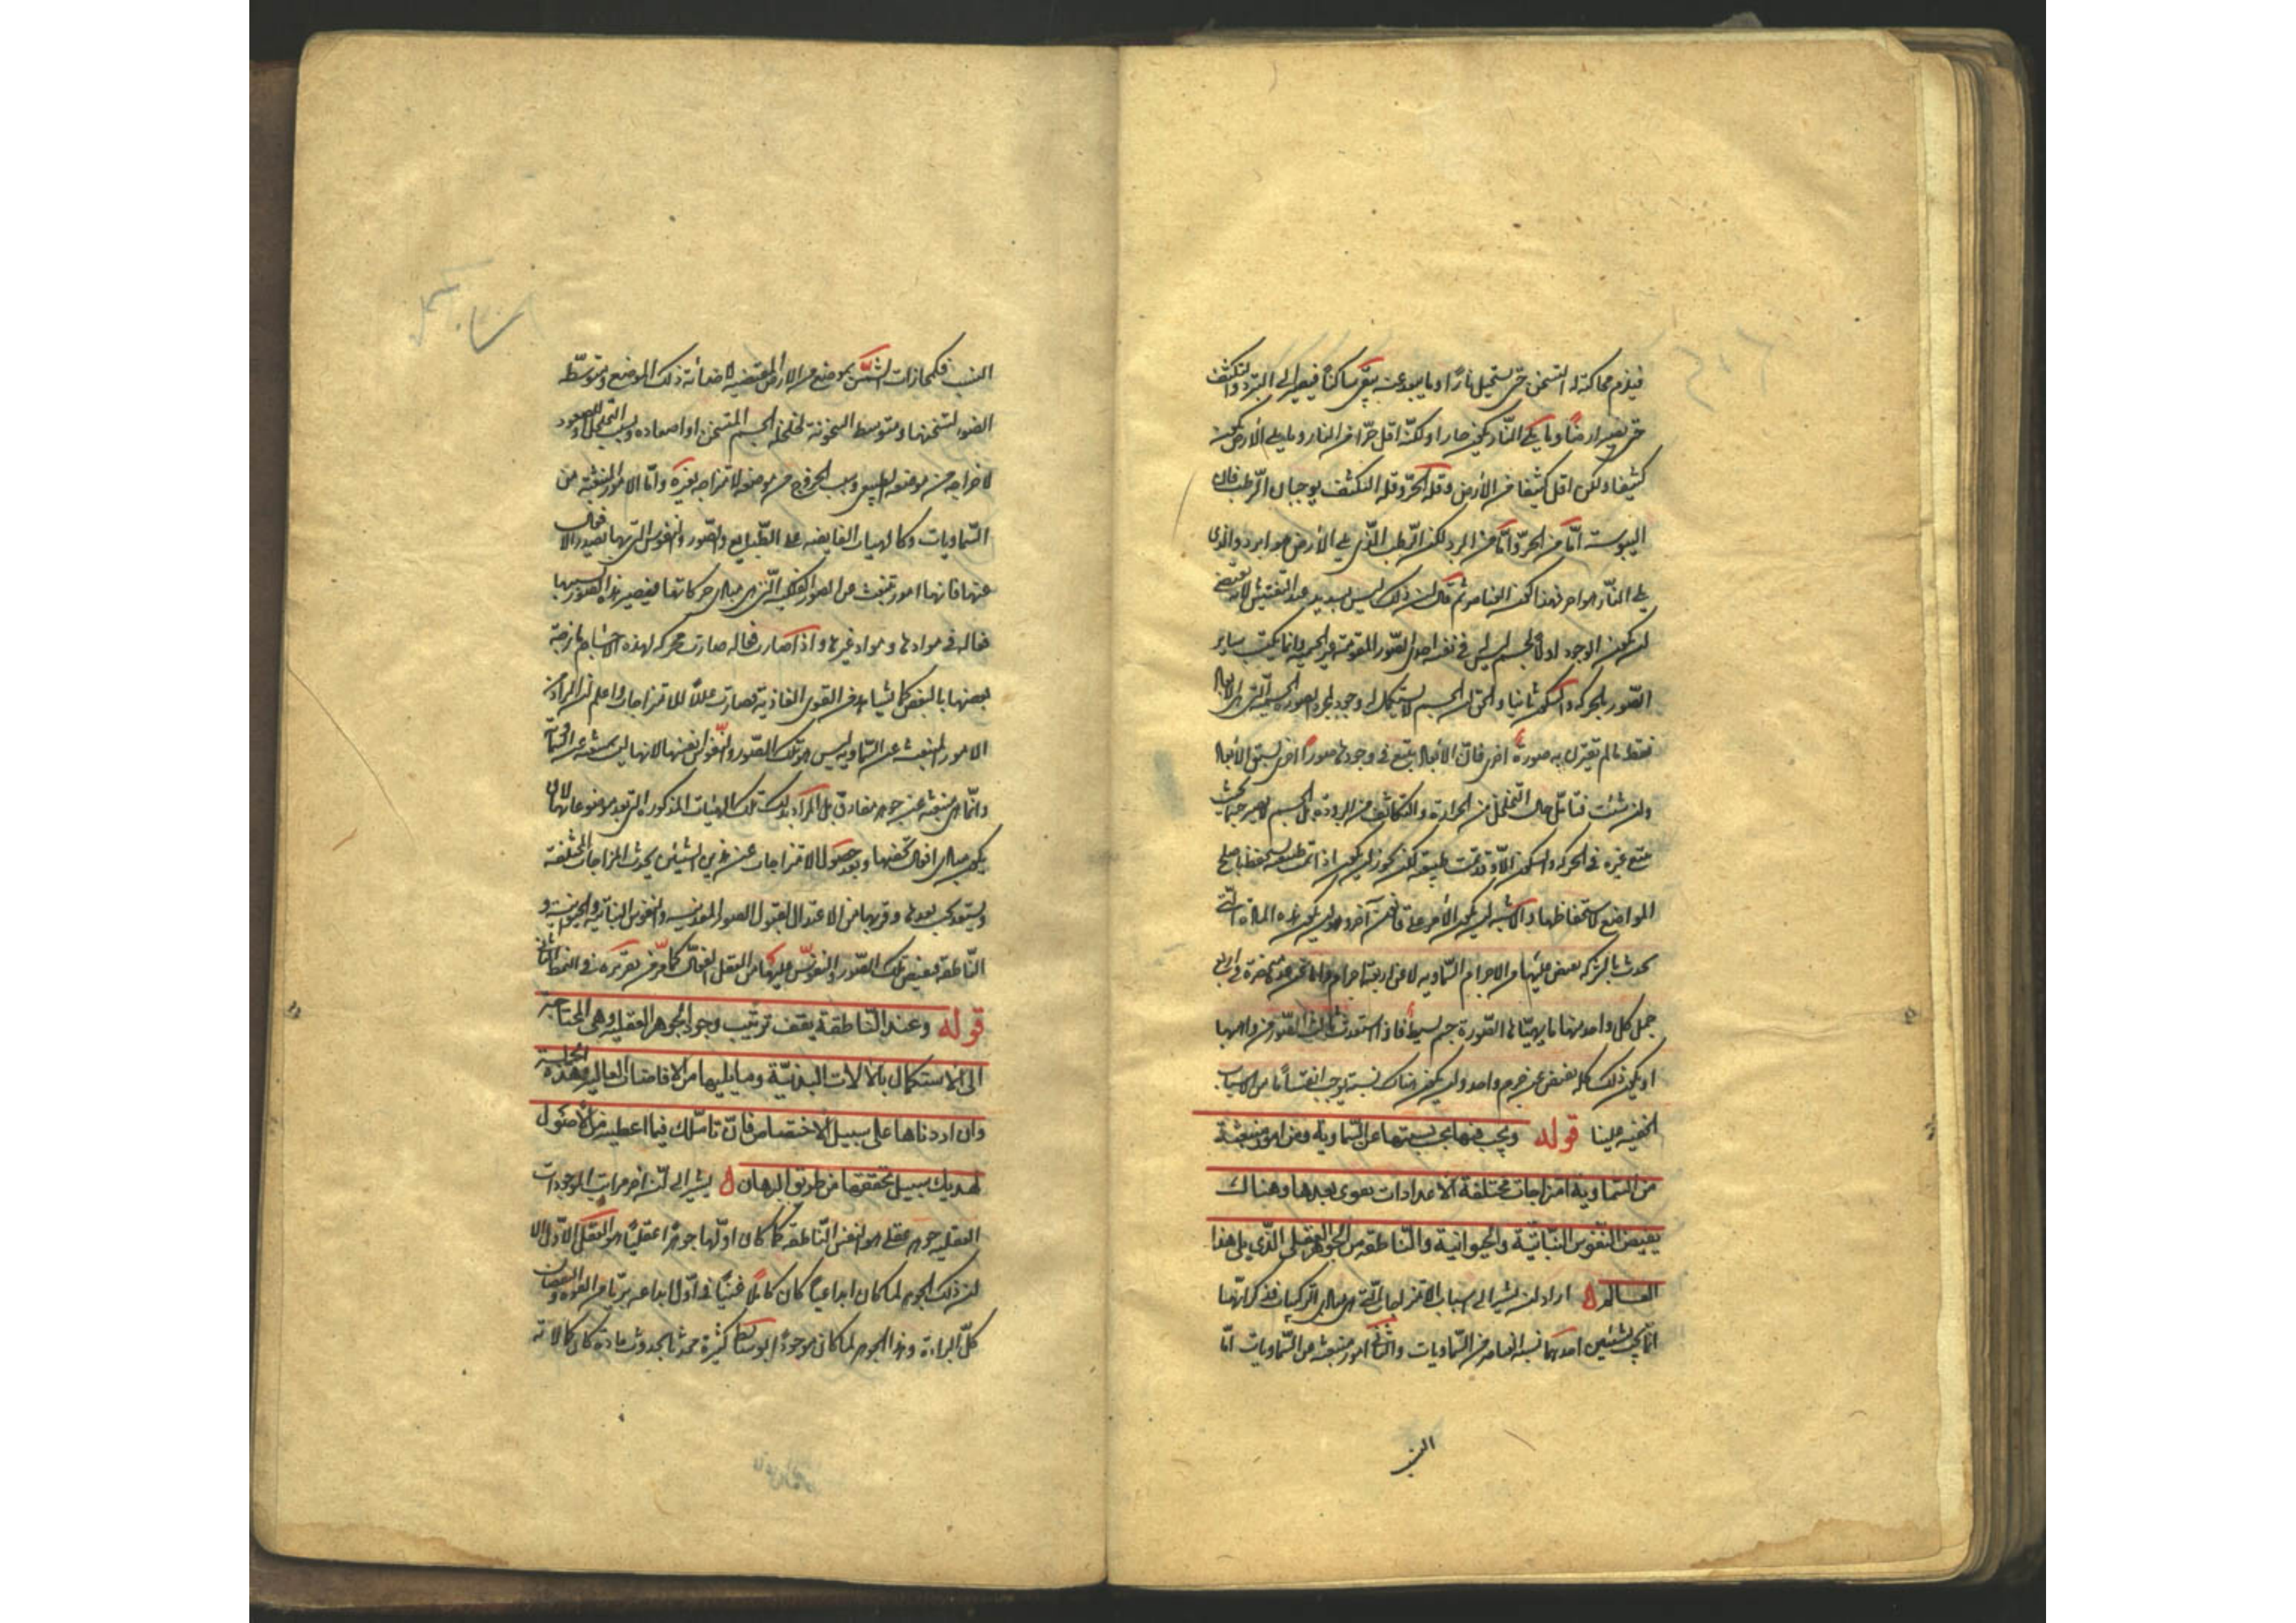 فيلزم محاكته له التسخن حتى يستحيل نارا وما يبعد عنه يبقى ساكنا فيصير الى التبرد والتكثف
حتى يصير ارضا وما يلى النار يكون حارا ولكنه اقل حرا من النار وما يلى الأرض يكون
كثيفا ولكن اقل كثيفا من الأرض وقلة الحر وقلة التكثف يوجبان الترطب فان
اليبوسة اما من الحر واما من البرد لكن الرطب الذى يلى الأرض هو ابرد والذى
يلى النار هو احر فهذا كون العناصر ثم قال ان ذلك ليس بسديد عند التفتيش لانه يقتضى
ان يكون الوجود اولا لجسم ليس فى نفسه احدى الصور المقومة غير الجسمية وانما يكتسب ساير
الصور بالحركة والسكون ثانيا والحق ان الجسم لا يستكمل له وجود بمجرد الصورة الجسمية التى هى الأبعاد
فقط ما لم تقترن به صورة اخرى فان الأبعاد يتبع فى وجودها صورا اخرى تسبق الأبعاد
وان شئت فتأمل حال التخلخل من الحرارة والتكاثف من البرودة بل الجسم لا يصير جسما بحيث
يتبع غيره فى الحركة والسكون الا وقد تمت طبيعته لكن يجوز ان يكون اذا تمت طبيعته يستحفظ باصلح
المواضع لاستحفاظها والأشبه ان يكون الأمر على قانون آخر وهو ان يكون هذه المادة التى
تحدث بالشركة يفيض عليها من الاجرام السماوية اما عن اربعة اجرام واما عن عدة منحصرة فى اربع
جمل كل واحد منها ما يهيئها لصورة جسم بسيط فاذا استعدت نالت الصور من واهبها
او يكون ذلك كله يفيض عن جرم واحد وان يكون هناك نسبة يوجب انقساما من الاسباب
الخفية علينا قوله ويجب فيها بحسب نسبتها من السماوية ومن امور منبعثة
من السماوية امتزاجات مختلفة الاعدادات لقوى بعدها وهناك
يفيض النفوس النباتية والحيوانية والناطقة من الجوهر العقلى الذى يلى هذا
العالم اراد ان يشير الى اسباب الامتزاجات التى هى مبادى التركيبات فذكر انها
انما يجب لشيئين احدهما نسبة العناصر من السماويات والثانى امور منبعثة من السماويات اما
النسب
النسب فكمحاذات الشمس بموضع من الارض المقتضية لاضائة ذلك الموضع وبتوسط
الضوء لتسخنها وبتوسط السخونة لتخلخل الجسم المتسخن او اصعاده وبسبب التخلخل والصعود
لاخراجه من موضعه الطبيعى وبسبب الخروج من موضعه لامتزاجه بغيره واما الامور المنبعثة من
السماويات فكالهيئات الفايضة على الطبايع والصور والنفوس التى بها تصير افعال الا
عنها فانها امور تنبعث عن الصور الفلكية التى هى مبادى حركاتها فيصير هذه الصور بسببها
فعالة فى موادها ومواد غيرها واذا صارت فعالة صارت محركة لهذه الاجسام مازجة
بعضها بالبعض كما يشاهد من القوى الغاذية فصارت عللا للامتزاجات واعلم ان المراد من
الامور المنبعثة عن السماوية ليس هو تلك الصور والنفوس انفسها لانها ليست منبعثة عن السماويات
وانما هى منبعثة عن جوهر مفارق بل المراد بذلك تلك الهيئات المذكورة التى تعد موضوعاتها لان
يكون مبادى افعال تخصها وبعد حصول الامتزاجات عن هذين الشيئين يحدث المزاجات المختلفة
ويستعد بحسب بعدها وقربها من الاعتدال لقبول الصور المعدنية والنفوس النباتية والحيوانية و
الناطقة فيفيض تلك الصور والنفوس عليها من العقل الفعال كما مر تقريره فى النمط الثانى
قوله وعند الناطقة يقف ترتيب وجود الجواهر العقلية وهى المحتاجة
الى الاستكمال بالآلات البدنية وما يليها من الافاضات العالية وهذه الجملة
وان اوردناها على سبيل الاختصاص فان تأملك فيما اعطيته من الأصول
يهديك سبيل تحققها من طريق البرهان يشير الى ان اخر مراتب الموجودات
العقلية جوهر عقلى هو النفس الناطقة كما كان اولها جوهرا عقليا هو العقل الاول الا
ان ذلك الجوهر لما كان ابداعيا كان كاملا غنيا فى اول ابداعه بريئا من القوة والنقصان
كل البراءة وهذا الجوهر لما كان موجودا بوسائط كثيرة محدثا بحدوث مادة كان كمالاته